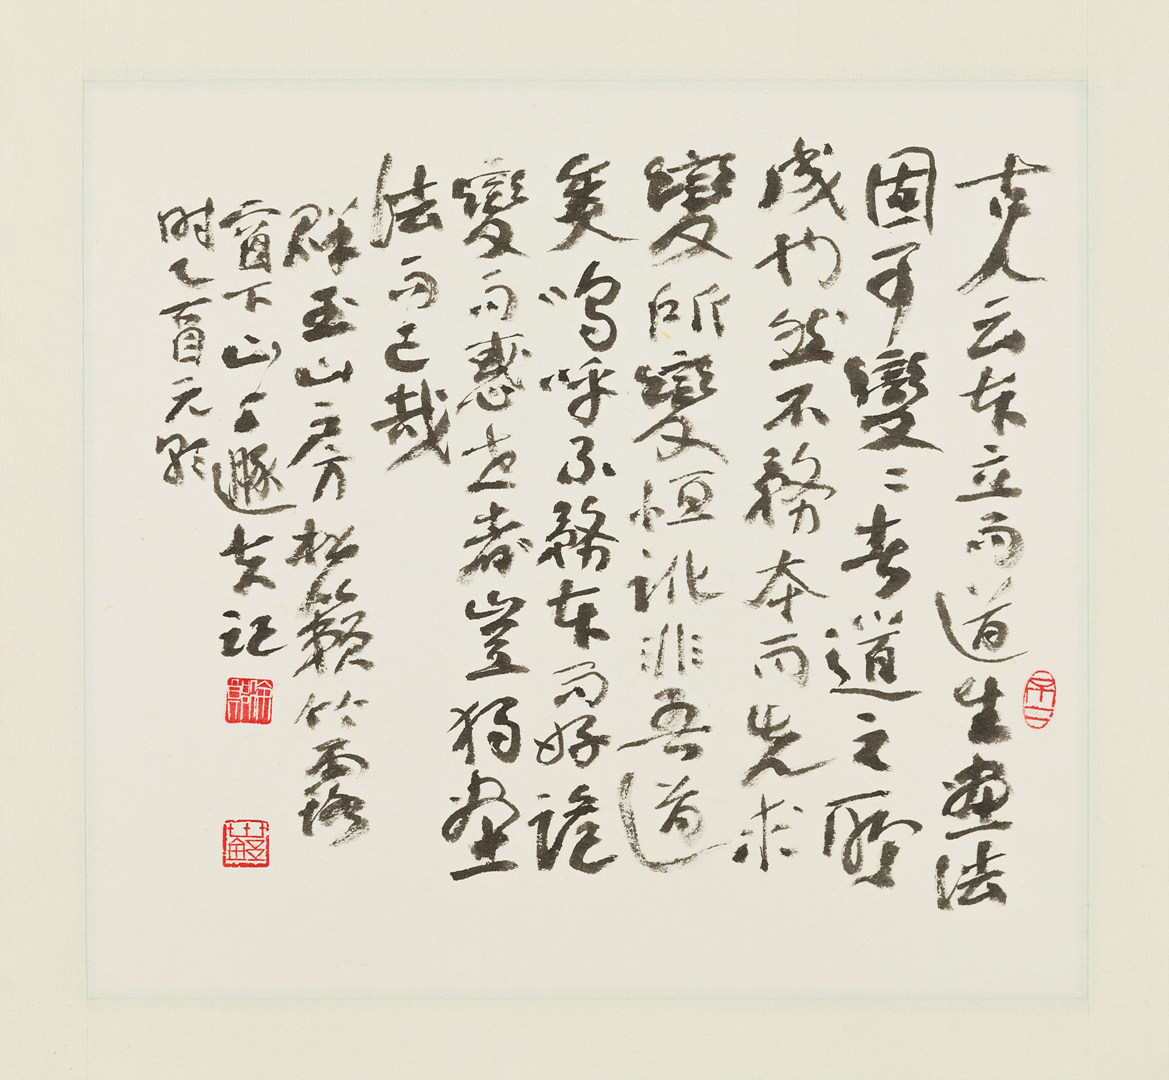 古人云本立而道生畫法
固可變變者道之所
成也然不務本而先求
變所變恒訛非吾道
矣嗚呼不務本而好談
變而惑世者豈獨畫
法而已哉
群玉山房松籟竹露
窗下山人遯夫記
時乙酉元